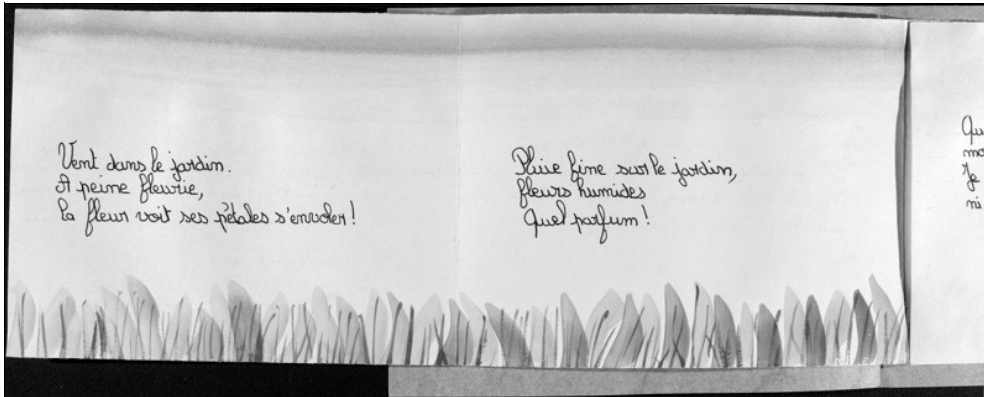 Vent dans le jardin.
A peine fleurie,
la fleur voit ses pétales s'envoler !
Pluie fine sur le jardin,
fleurs humides
Quel parfum !
Qu
mo
Je
ni